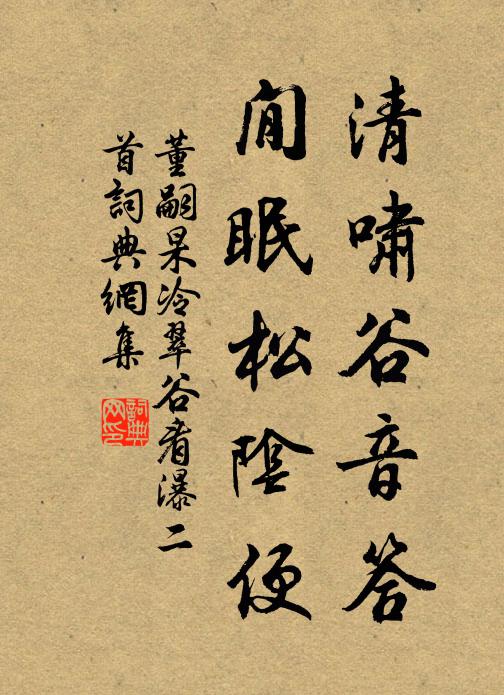 清嘯谷音答
閒眠松陰便
董嗣杲冷翠谷看瀑二
首詞典網集
詞典
网印